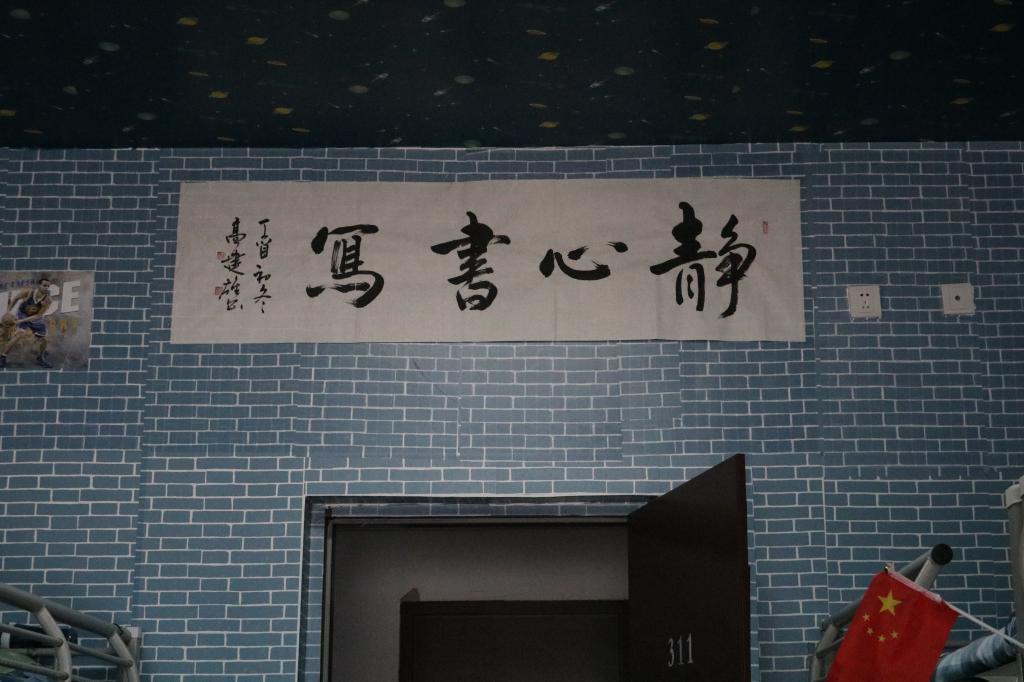 静心書寫
丁酉初冬
高建雄书
311